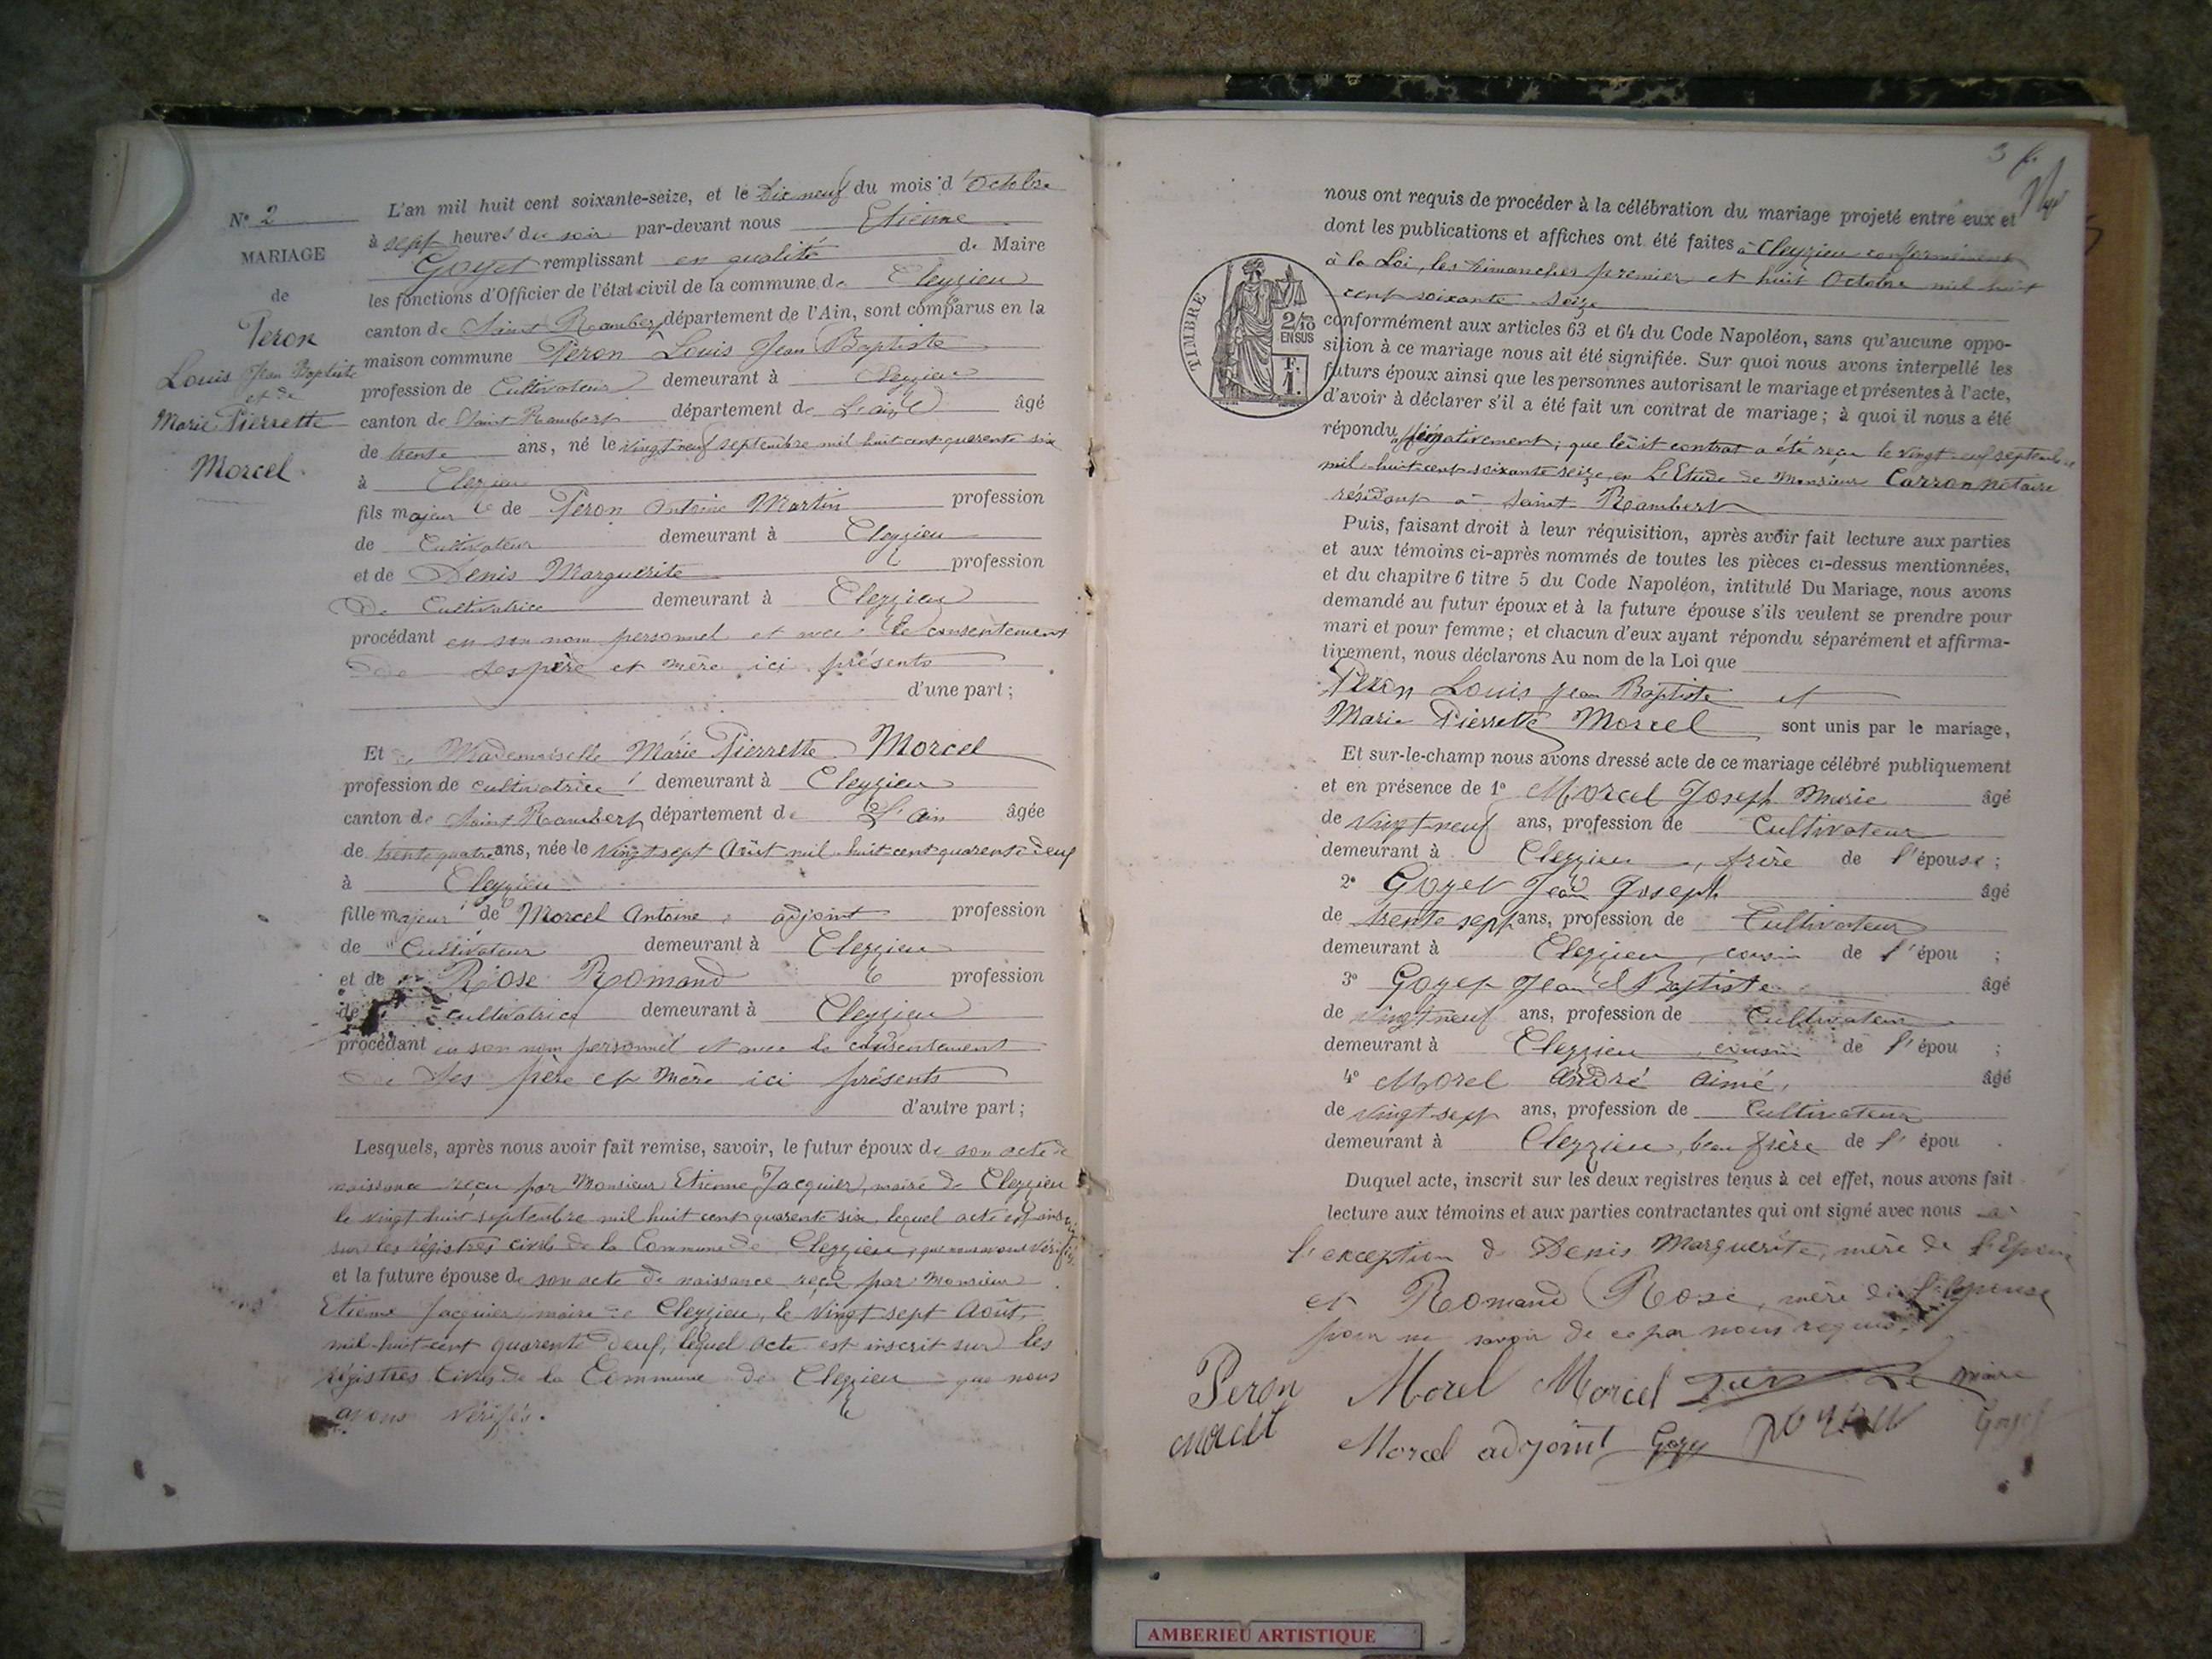 N° 2
MARIAGE
de
Peron
Louis Jean Baptiste
et de
Marie Pierrette
Morcel.
L'an mil huit cent soixante-seize, et le Dix neuf du mois d'Octobre
à sept heures du soir par-devant nous Etienne
Goyet remplissant en qualité de Maire
les fonctions d'Officier de l'état civil de la commune de Cleyzieu
canton de Saint Rambert département de l'Ain, sont comparus en la
maison commune Peron Louis Jean Baptiste
profession de Cultivateur demeurant à Cleyzieu
canton de Saint Rambert département de L'ain âgé
de trente ans, né le vingt neuf septembre mil huit cent quarente six
à Cleyzieu
fils majeur de Peron Antoine Martin profession
de Cultivateur demeurant à Cleyzieu
et de Denis Marguerite profession
De Cultivatrice demeurant à Cleyzieu
procédant en son nom personnel et avec le consentement
de ses père et mère ici présents
d'une part;
Et Mademoiselle Marie Pierrette Morcel
profession de cultivatrice demeurant à Cleyzieu
canton de Saint Rambert département de L'ain âgée
de trente quatre ans, née le vingt sept Août mil huit cent quarente deux
à Cleyzieu
fille majeur de Morcel Antoine, adjoint profession
de Cultivateur demeurant à Cleyzieu
et de Rose Romand profession
de cultivatrice demeurant à Cleyzieu
procédant en son nom personnel et avec le consentement
de ses père et mère ici présents
d'autre part;
Lesquels, après nous avoir fait remise, savoir, le futur époux de son acte de
naissance reçu par Monsieur Etienne Jacquier, maire de Cleyzieu
le vingt huit septembre mil huit cent quarente six, lequel acte est inscrit
sur les régistres civils de la Commune de Cleyzieu, que nous avons vérifiés
et la future épouse de son acte de naissance reçu par Monsieur
Etienne Jacquier maire de Cleyzieu, le vingt sept Août
mil-huit-cent quarente deux, lequel acte est inscrit sur les
régistres Civils de la Commune de Cleyzieu que nous
avons vérifés.
nous ont requis de procéder à la célébration du mariage projeté entre eux et
dont les publications et affiches ont été faites à Cleyzieu conformément
à la Loi, les Dimanches premier et huit Octobre mil huit
cent soixante-seize
TIMBRE
2/10
EN SUS
F.
1.
conformément aux articles 63 et 64 du Code Napoléon, sans qu'aucune oppo-
sition à ce mariage nous ait été signifiée. Sur quoi nous avons interpellé les
futurs époux ainsi que les personnes autorisant le mariage et présentes à l'acte,
d'avoir à déclarer s'il a été fait un contrat de mariage; à quoi il nous a été
répondu affirmativement; que ledit contrat a été reçu le vingt neuf septembre
mil-huit-cent-soixante seize en L'Etude de Monsieur Carron notaire
résidant à Saint Rambert
Puis, faisant droit à leur réquisition, après avoir fait lecture aux parties
et aux témoins ci-après nommés de toutes les pièces ci-dessus mentionnées,
et du chapitre 6 titre 5 du Code Napoléon, intitulé Du Mariage, nous avons
demandé au futur époux et à la future épouse s'ils veulent se prendre pour
mari et pour femme; et chacun d'eux ayant répondu séparément et affirma-
tivement, nous déclarons Au nom de la Loi que
Peron Louis Jean Baptiste et
Marie Pierrette Morcel sont unis par le mariage,
Et sur-le-champ nous avons dressé acte de ce mariage célébré publiquement
et en présence de 1° Morcel Joseph Marie âgé
de vingt neuf ans, profession de Cultivateur
demeurant à Cleyzieu, frère de l'épouse;
2° Goyet Jean Joseph âgé
de trente sept ans, profession de Cultivateur
demeurant à Cleyzieu, cousin de l'épou ;
3° Goyet Jean Baptiste âgé
de vingt neuf ans, profession de Cultivateur
demeurant à Cleyzieu, cousin de l'épou ;
4° Morel André Aimé, âgé
de vingt sept ans, profession de Cultivateur
demeurant à Cleyzieu, beau frère de l'épou .
Duquel acte, inscrit sur les deux registres tenus à cet effet, nous avons fait
lecture aux témoins et aux parties contractantes qui ont signé avec nous à
l'exception de Denis Marguerite, mère de l'Epoux
et Romand Rose, mère de l'Epouse
pour ne savoir de ce par nous requis.
Peron Morel Morcel Le maire
Morcel adjoint Goyet
AMBERIEU ARTISTIQUE